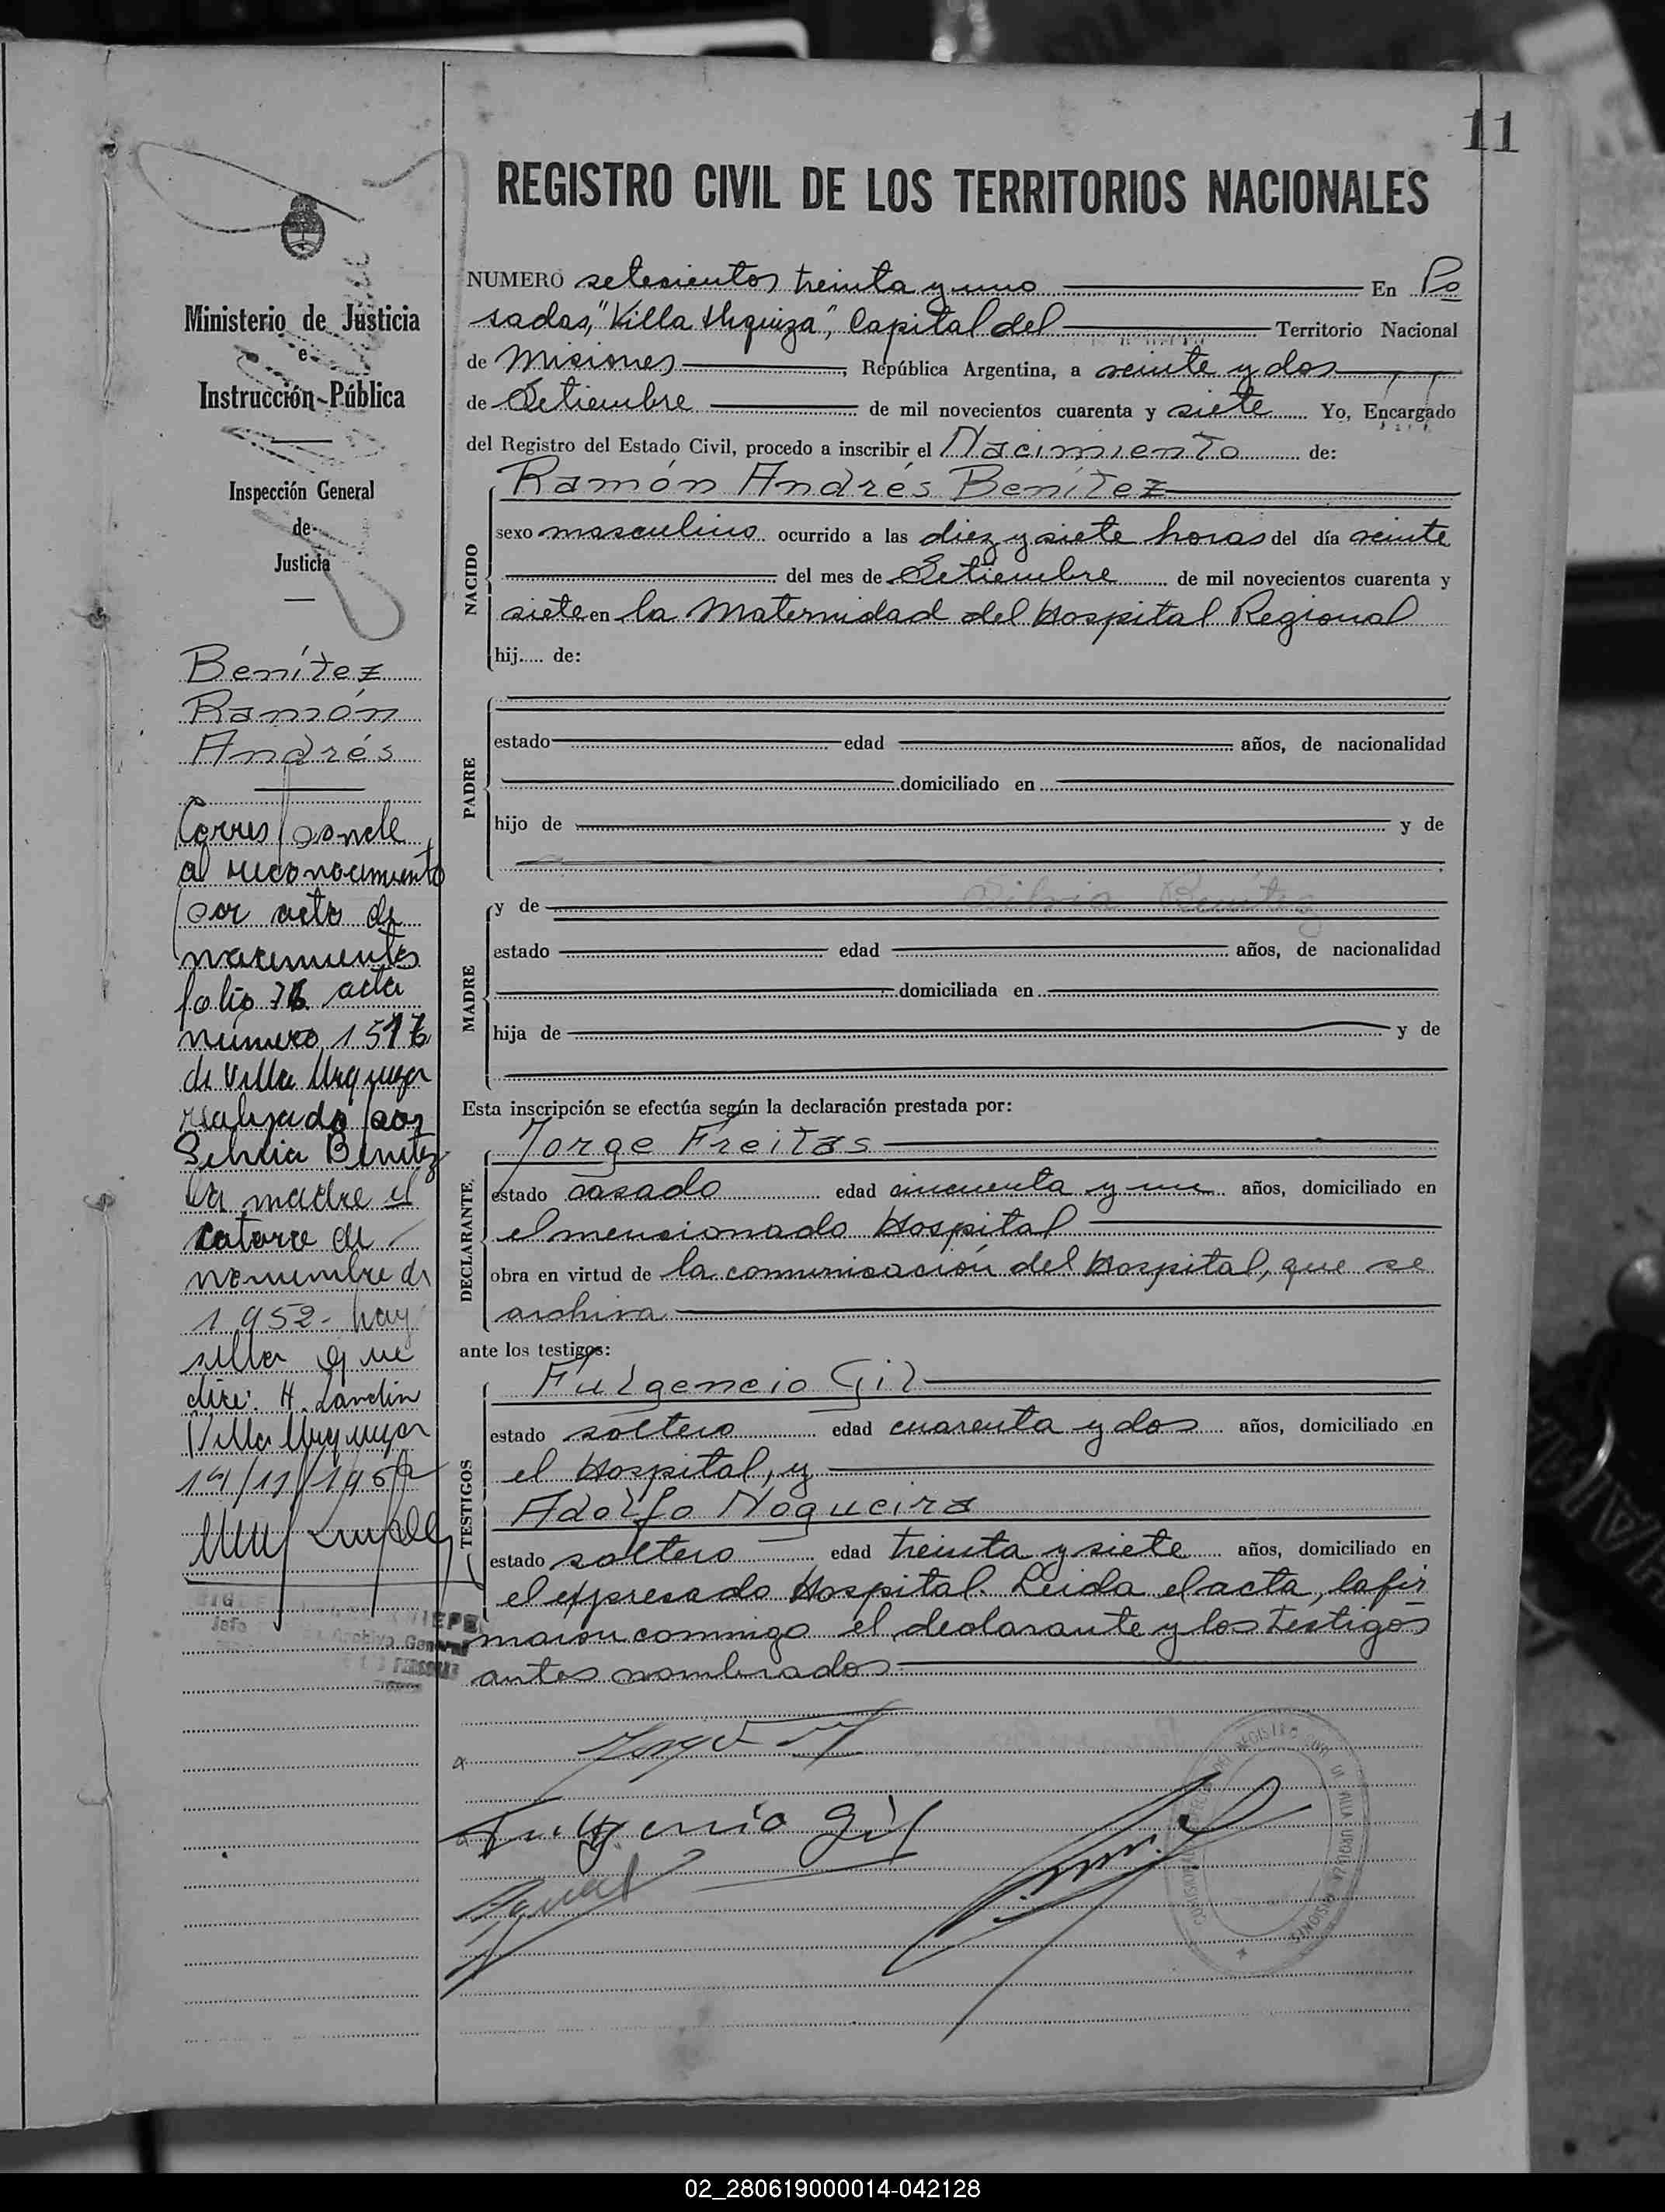 11
REGISTRO CIVIL DE LOS TERRITORIOS NACIONALES
Ministerio de Justicia
e
Instrucción Pública
Inspección General
de
Justicia
Benítez
Ramón
Andrés
Corresponde
al reconocimiento
por acta de
nacimientos
folio 76 acta
número 1516
de Villa Urquiza
realizado por
Silvia Benitez
la madre el
catorce de
noviembre de
1952 - hay
sello que
dice: H. Landin
Villa Urquiza
14/11/1952
Jefe Archivo General
NUMERO setecientos treinta y uno En Po
sadas, "Villa Urquiza", Capital del Territorio Nacional
de Misiones, República Argentina, a veinte y dos
de Setiembre de mil novecientos cuarenta y siete Yo, Encargado
del Registro del Estado Civil, procedo a inscribir el Nacimiento de:
NACIDO
Ramón Andrés Benítez
sexo masculino ocurrido a las diez y siete horas del día veinte
del mes de Setiembre de mil novecientos cuarenta y
siete en la Maternidad del Hospital Regional
hij..... de:
PADRE
estado edad años, de nacionalidad
domiciliado en
hijo de y de
MADRE
y de Silvia Benítez
estado edad años, de nacionalidad
domiciliada en
hija de y de
Esta inscripción se efectúa según la declaración prestada por:
DECLARANTE
Jorge Freitas
estado casado edad cincuenta y un años, domiciliado en
el mencionado Hospital
obra en virtud de la comunicación del Hospital, que se
archiva
ante los testigos:
TESTIGOS
Fulgencio Gil
estado soltero edad cuarenta y dos años, domiciliado en
el Hospital, y
Adolfo Nogueira
estado soltero edad treinta y siete años, domiciliado en
el expresado Hospital. Leida el acta, la fir
maron conmigo el declarante y los testigos
antes nombrados
Fulgencio Gil
02_280619000014-042128